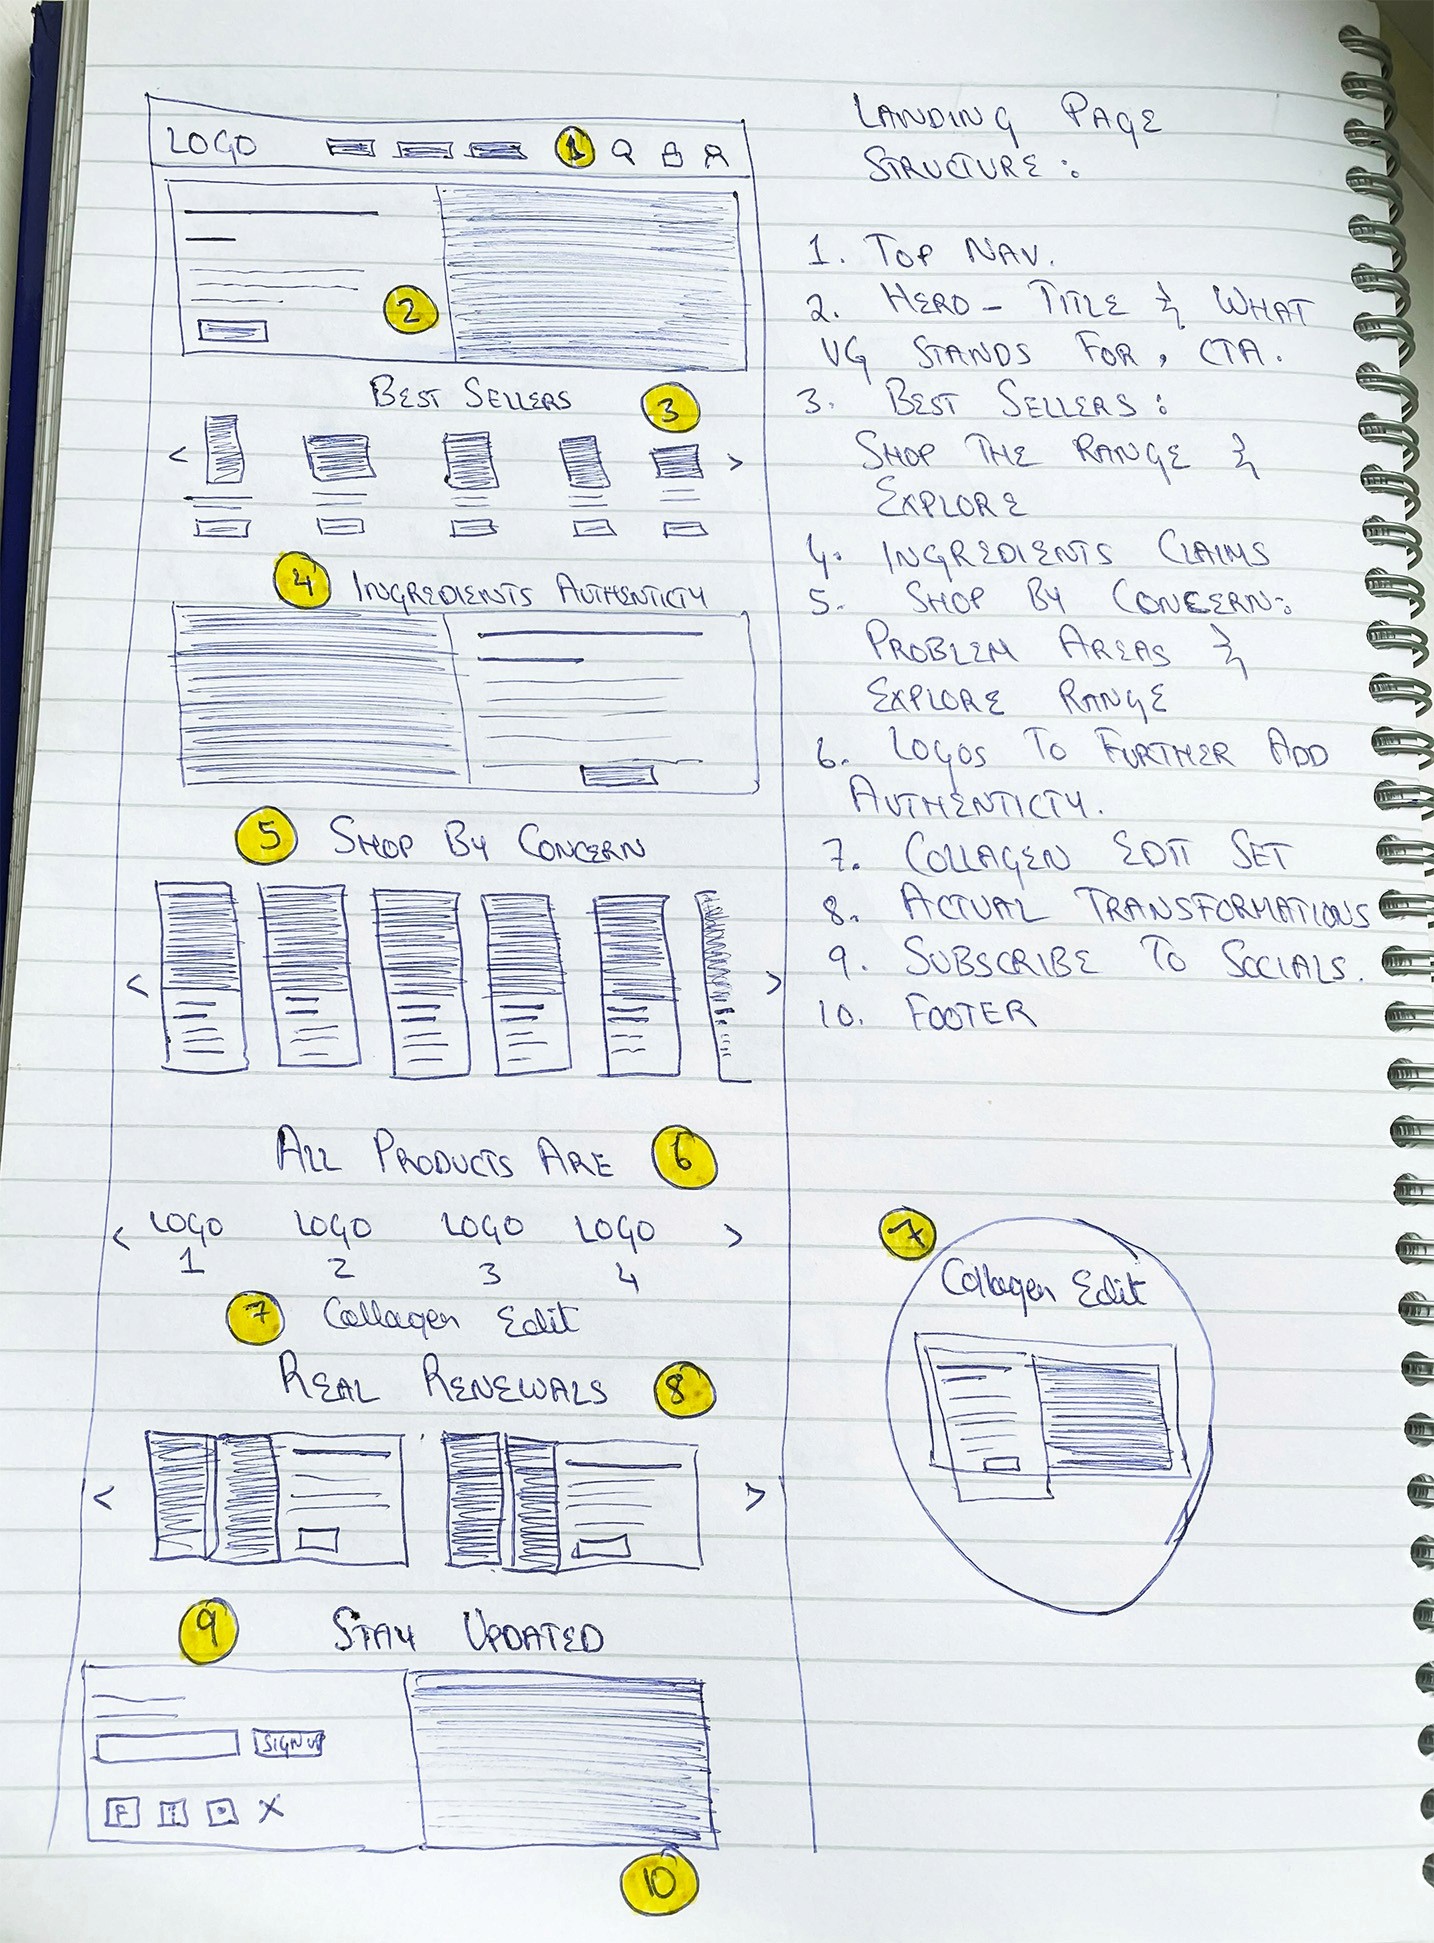 LOGO
1
2
BEST SELLERS
3
<
>
4
INGREDIENTS AUTHENTICTY
5
SHOP BY CONCERN
<
>
ALL PRODUCTS ARE
6
< LOGO LOGO LOGO LOGO >
1 2 3 4
7
Collagen Edit
REAL RENEWALS
8
<
>
9
STAY UPDATED
SIGN UP
F
X
10
LANDING PAGE
STRUCTURE:
1. TOP NAV.
2. HERO - TITLE & WHAT
VG STANDS FOR, CTA.
3. BEST SELLERS:
SHOP THE RANGE &
EXPLORE
4. INGREDIENTS CLAIMS
5. SHOP BY CONCERN:
PROBLEM AREAS &
EXPLORE RANGE
6. LOGOS TO FURTHER ADD
AUTHENTICTY.
7. COLLAGEN EDIT SET
8. ACTUAL TRANSFORMATIONS
9. SUBSCRIBE TO SOCIALS.
10. FOOTER
7
Collagen Edit